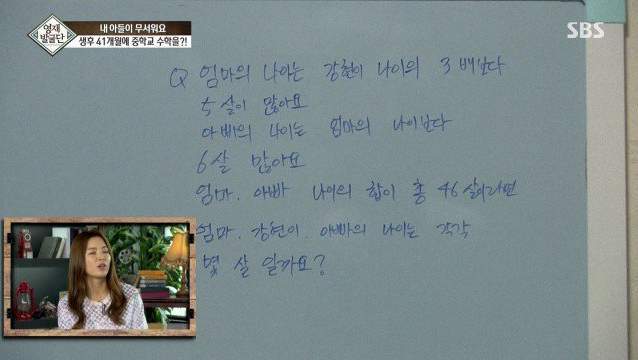 영재
발굴단
내 아들이 무서워요
생후 41개월에 중학교 수학을?!
SBS
Q 엄마의 나이는 강현이 나이의 3배보다
5살이 많아요
아빠의 나이는 엄마의 나이보다
6살 많아요
엄마. 아빠 나이의 합이 총 46살이라면
엄마. 강현이. 아빠의 나이는 각각
몇 살 일까요?